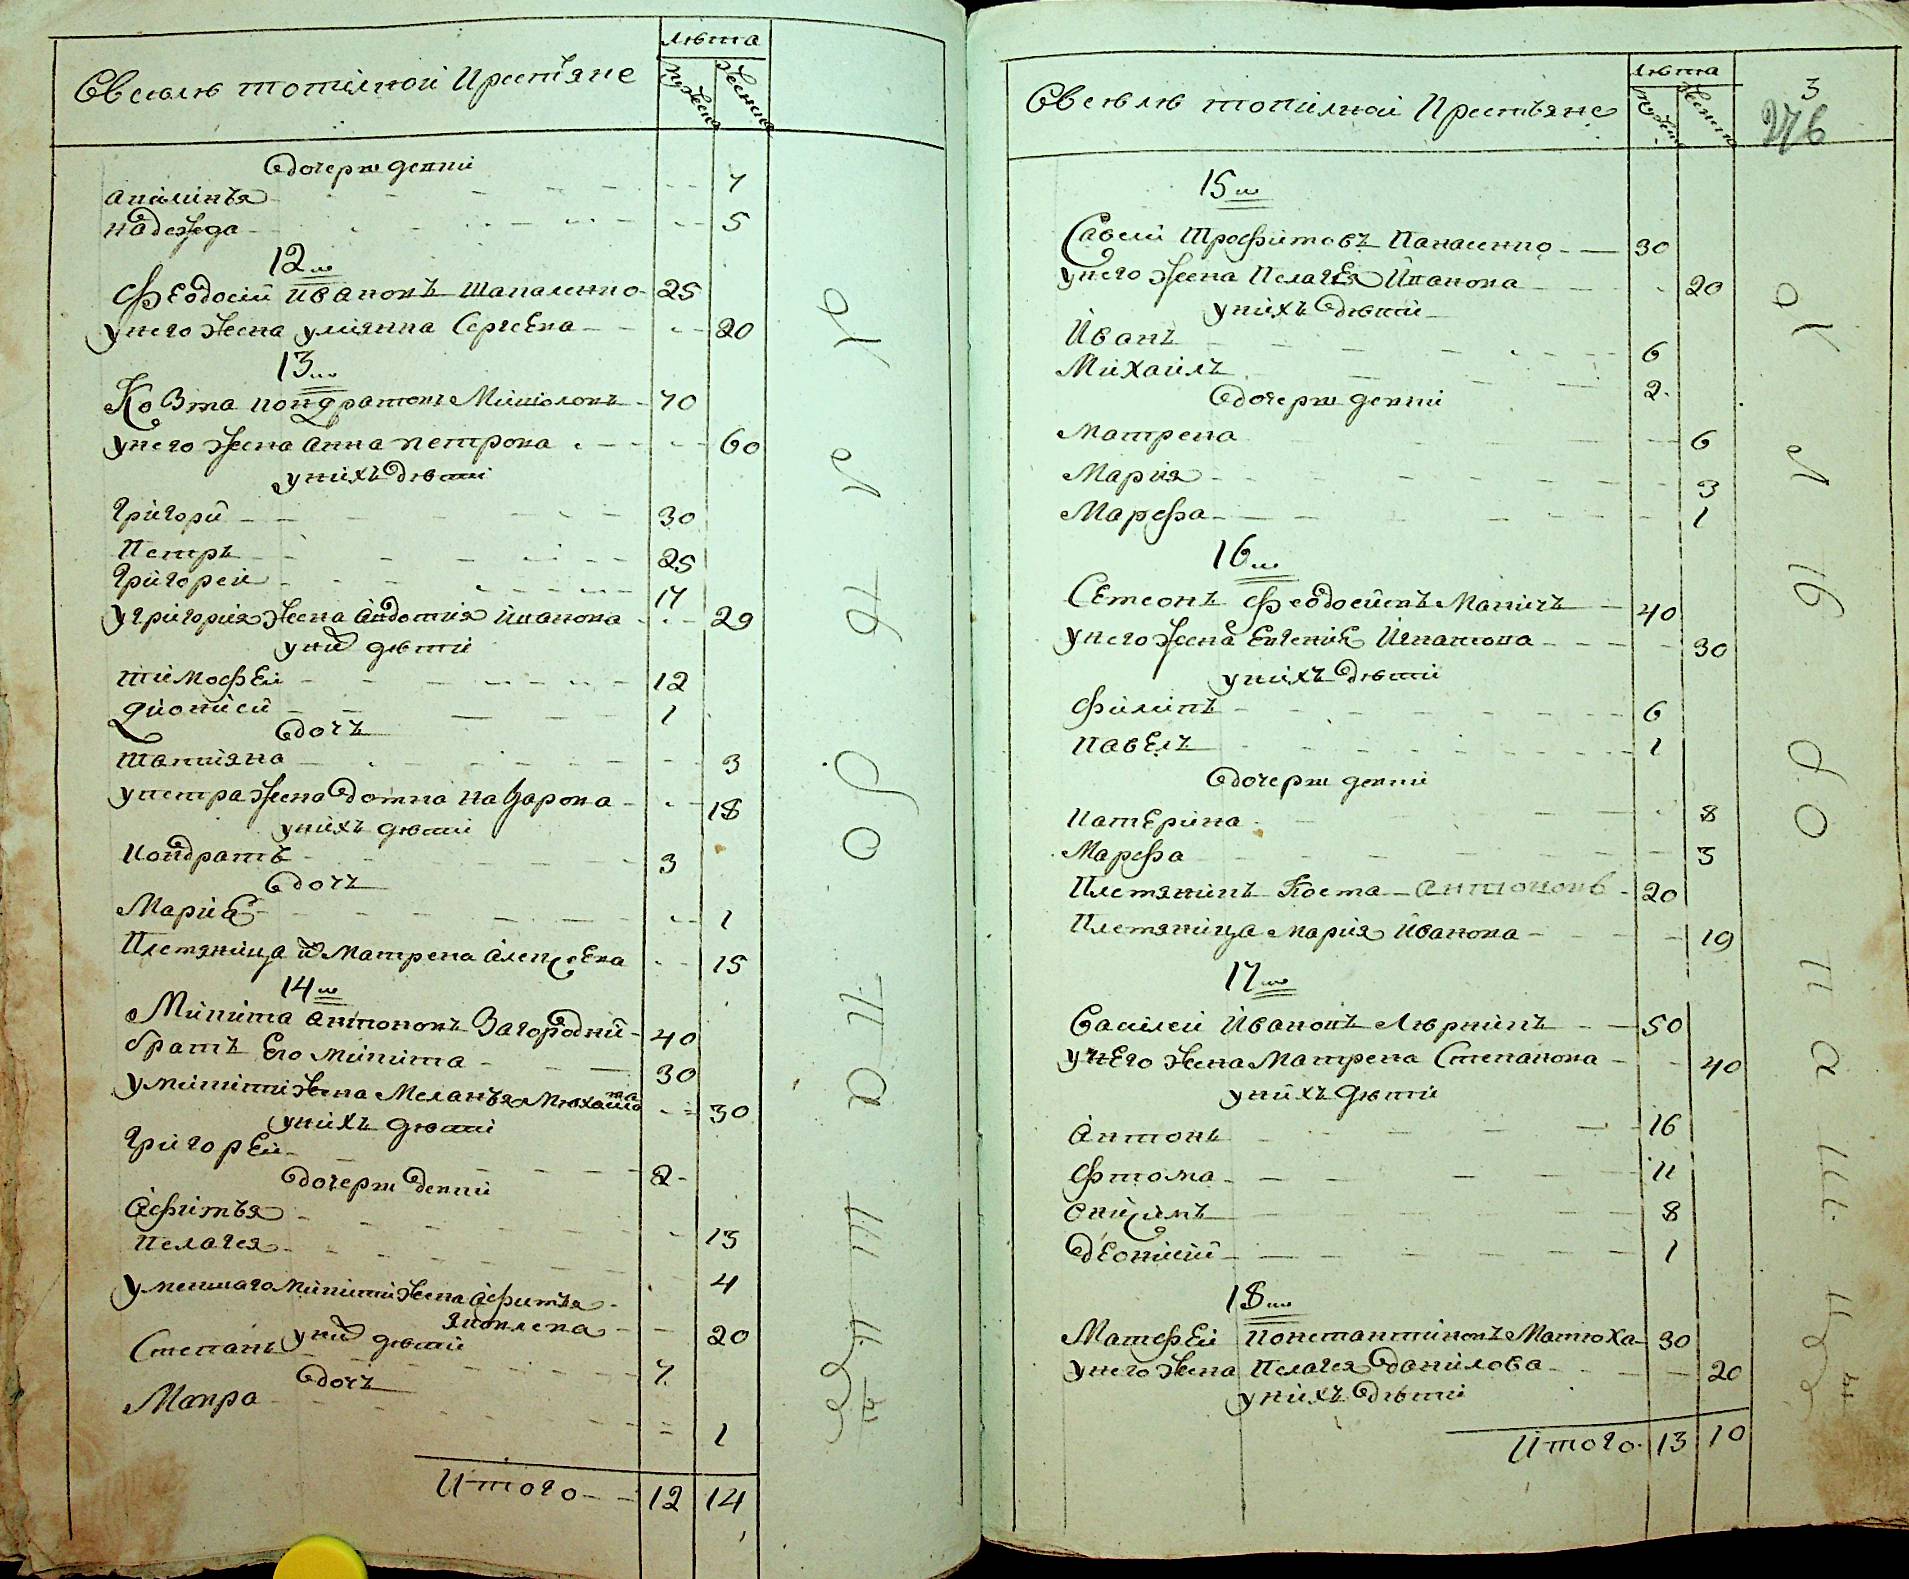 Въ селѣ топилной крестьяне
лѣта
мужеска
женска
дочерне детий
Акилинья 7
надежда 5
12ш
Феодосий Ивановъ Шапаленко 25
у него жена улиянна Сергеева 20
13ш
Козма кондратовъ 70
у него жена Анна петрова 60
у нихъ дѣтий
Григорий 30
Петръ 25
Григорей 17
у Григория жена Авдотия Иванова 29
у ний дѣти
тимофей 12
Дионисий 1
дочь
татияна 3
у петра жена домна назарова 18
у нихъ дѣтий
кондратъ 3
дочь
Мария 1
Племяница и Матрена Алексеева 15
14ш
Микита антоновъ Загородний 40
братъ Его микита 30
у микити жена Меланья Михайлова 30
у нихъ дѣтий
Григорей 2
дочерне детий
Афимья 13
пелагея 4
у меншаго микити жена Афимья
яковлева 20
у ний дѣтий
Степанъ 7
дочь
Мавра 1
Итого 12 14
Въ селѣ топилной Крестьяне
лѣта
мужеска
женска
3
276
15ш
Савелий Трофимовъ Панасенко 30
у него жена Пелагея Иванова 20
у нихъ дѣтий
Иванъ 6
Михаилъ 2
дочерне детий
Матрена 6
Мария 3
Марфа 1
16ш
Семеонъ феодосиевъ 40
у него жена Евгения Игнатова 30
у нихъ дѣтий
филипъ 6
павелъ 1
дочерне детий
катерина 8
Марфа 3
Племянникъ Коста Антоновъ 20
Племяница мария Иванова 19
17ш
Василей Ивановъ 50
у нЕго жена Матрена Степанова 40
у нихъ дѣтий
Антонъ 16
фтома 11
Онисимъ 8
Деонисий 1
18ш
Матфей константиновъ Матюха 30
у него жена Пелагея данилова 20
у нихъ дѣтий
Итого 13 10